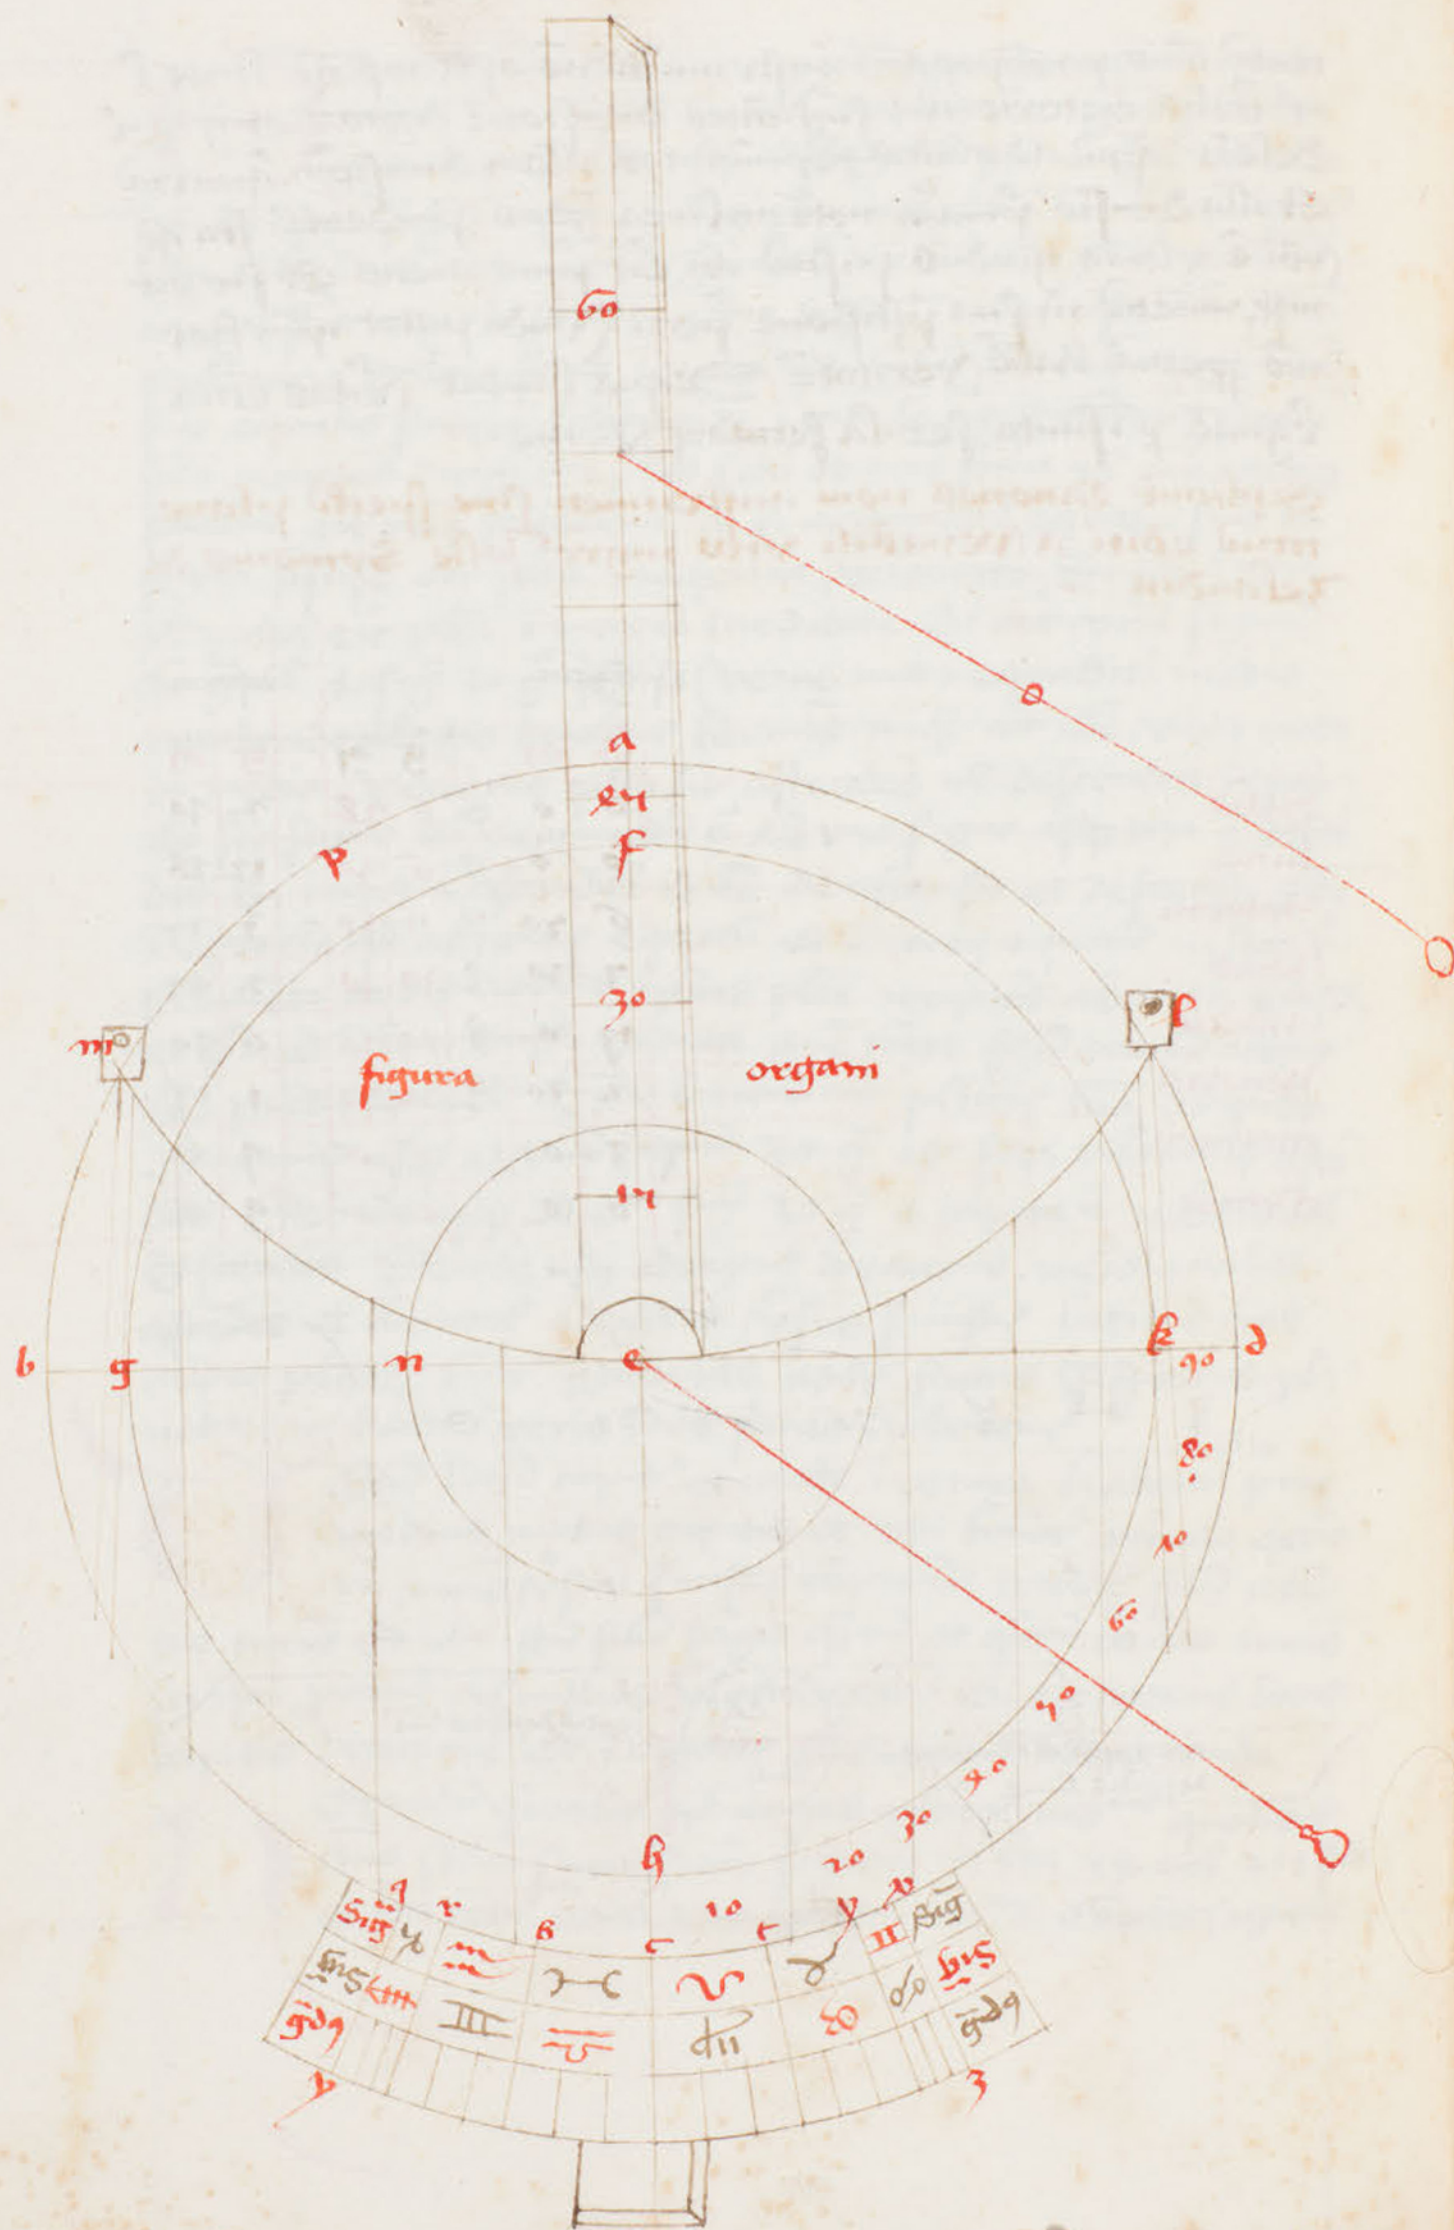 60
o
a
24
p
f
30
m
l
figura
organi
14
b
g
n
e
k
d
90
80
70
60
50
40
30
h
20
10
q
r
s
c
t
y
v
Sig ♑ ♒ ♓ ♈ ♉ ♊ Sig
Sig ♐ ♏ ♎ ♍ ♌ ♋ Sig
gdq
gdq
y
z